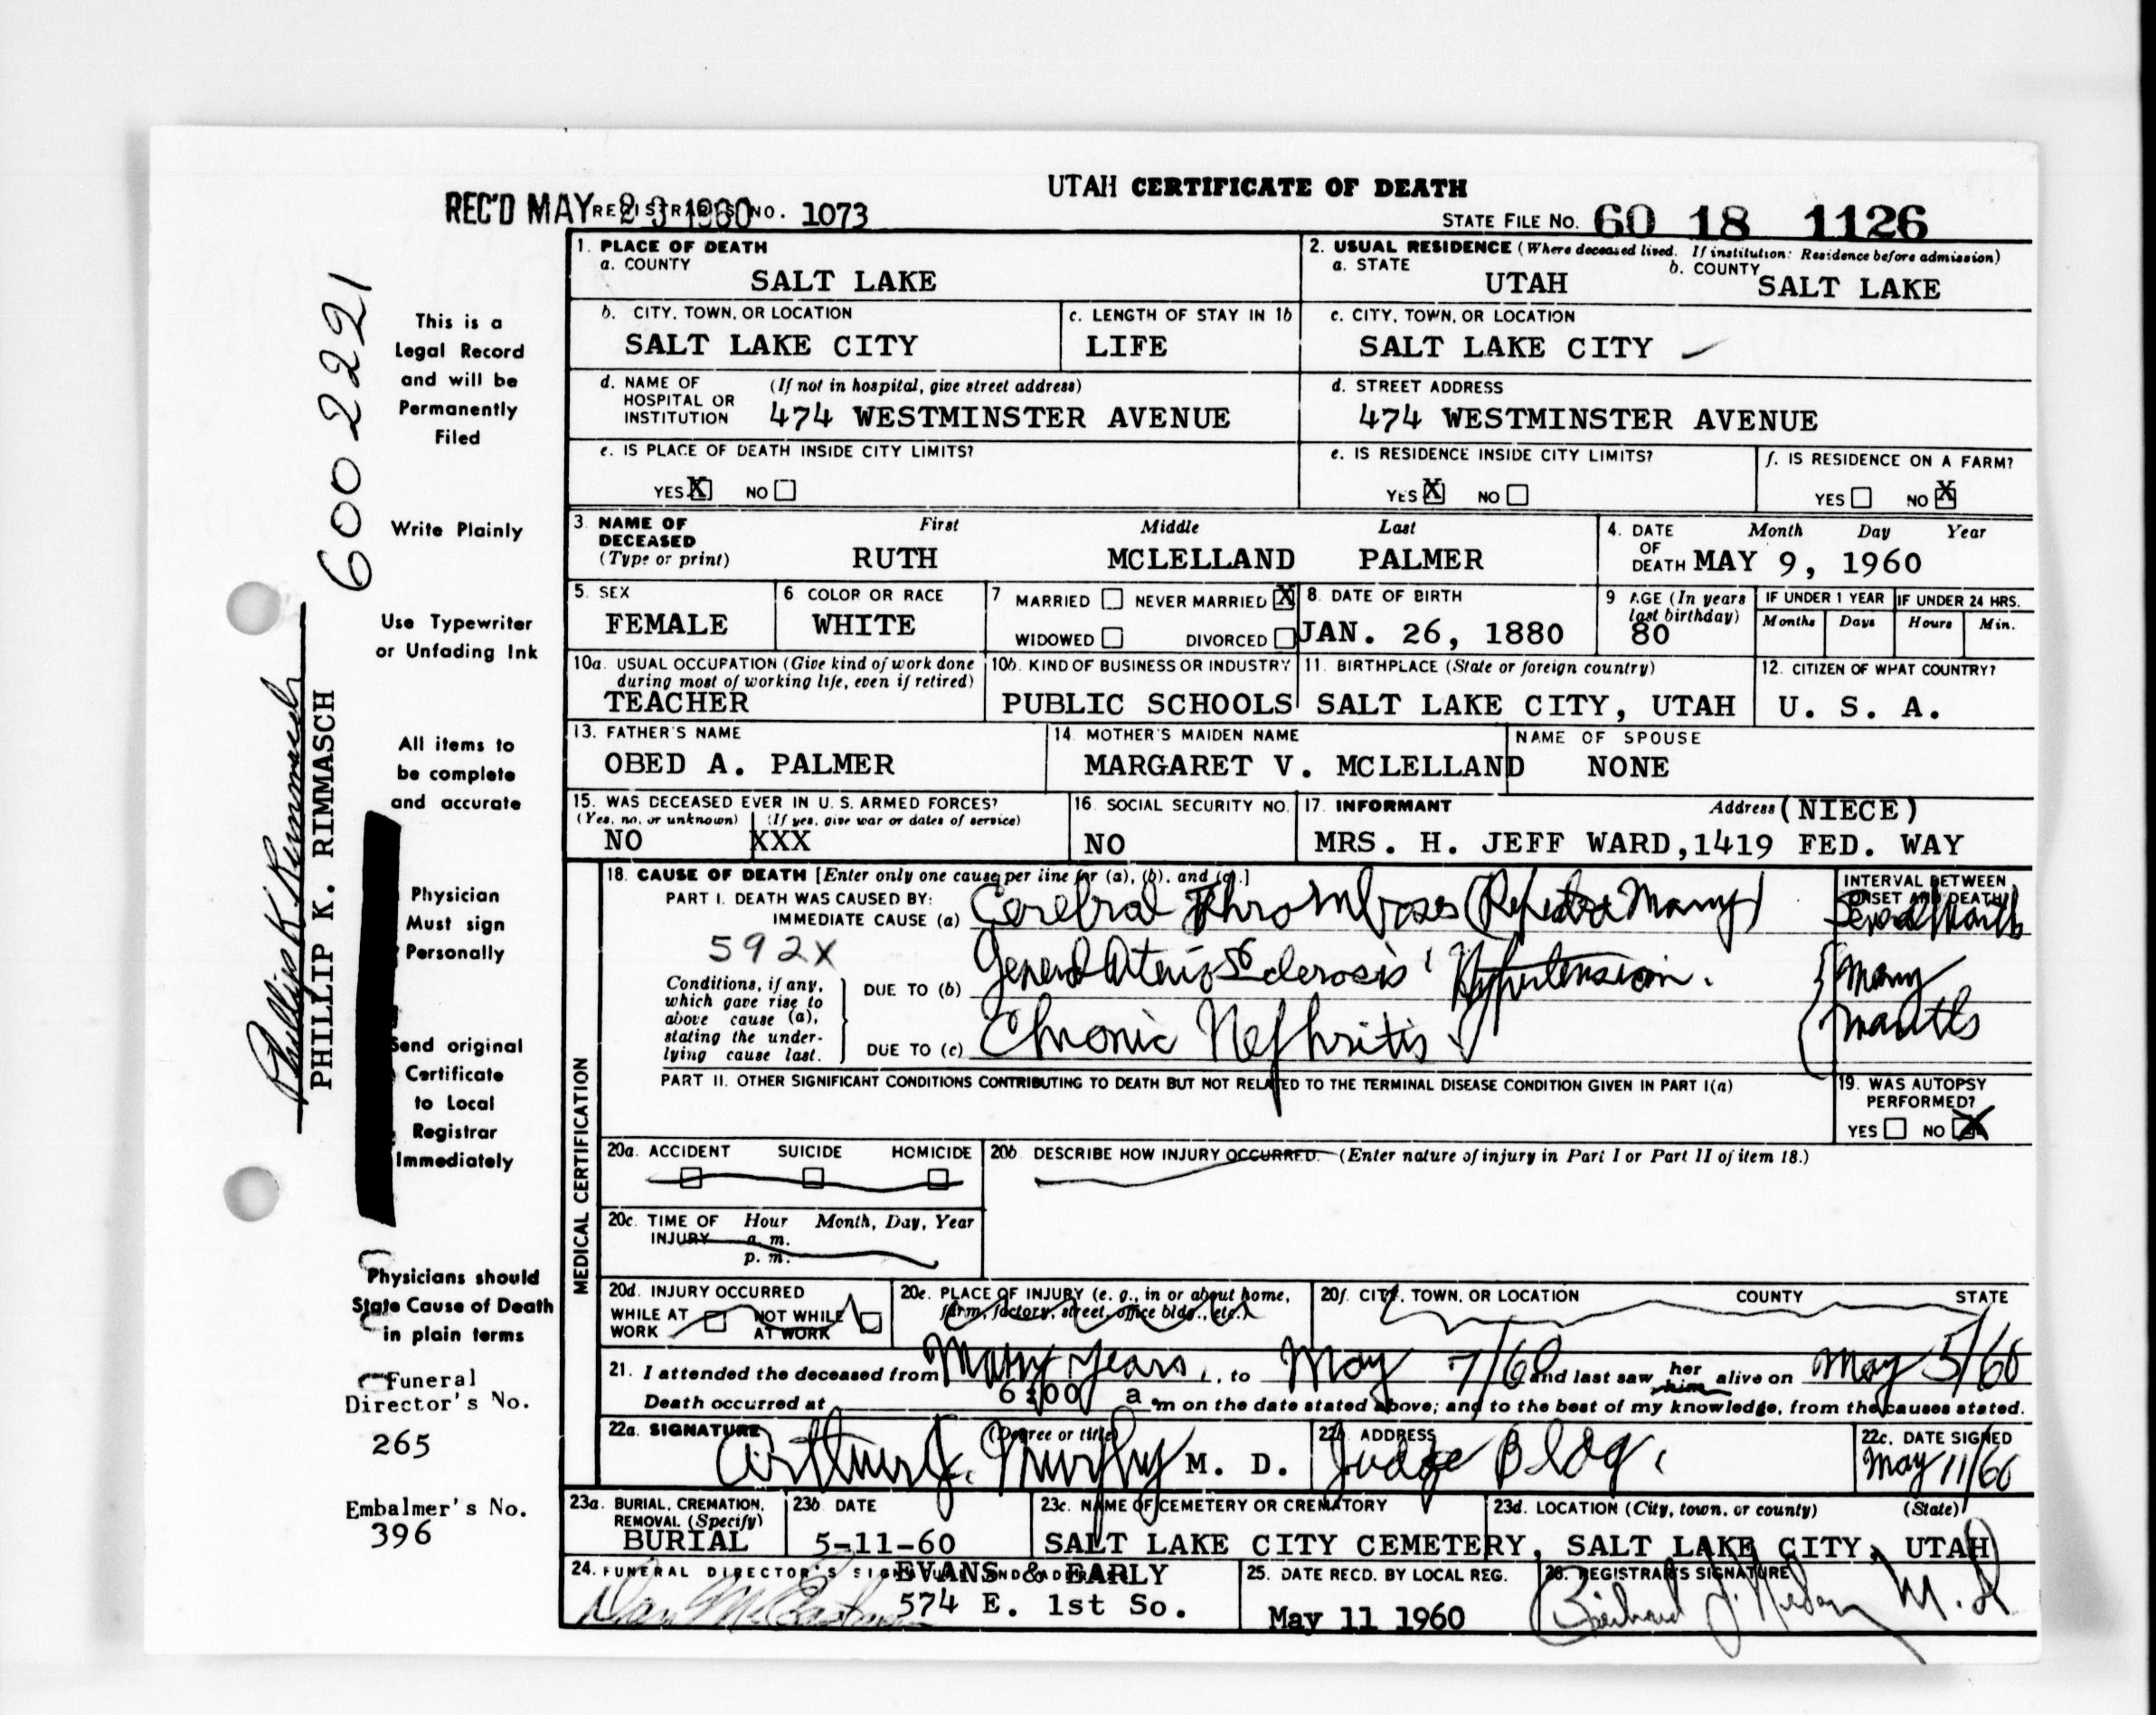 UTAH CERTIFICATE OF DEATH
REC'D MAY 23 1960 REGISTRAR'S NO. 1073
STATE FILE NO. 60 18 1126
1. PLACE OF DEATH
a. COUNTY
SALT LAKE
2. USUAL RESIDENCE (Where deceased lived. If institution: Residence before admission)
a. STATE b. COUNTY
UTAH SALT LAKE
b. CITY, TOWN, OR LOCATION
SALT LAKE CITY
c. LENGTH OF STAY IN 1b
LIFE
c. CITY, TOWN, OR LOCATION
SALT LAKE CITY
d. NAME OF HOSPITAL OR INSTITUTION (If not in hospital, give street address)
474 WESTMINSTER AVENUE
d. STREET ADDRESS
474 WESTMINSTER AVENUE
e. IS PLACE OF DEATH INSIDE CITY LIMITS?
YES X NO
e. IS RESIDENCE INSIDE CITY LIMITS?
YES X NO
f. IS RESIDENCE ON A FARM?
YES NO X
3. NAME OF DECEASED (Type or print) First Middle Last
RUTH MCLELLAND PALMER
4. DATE OF DEATH Month Day Year
MAY 9, 1960
5. SEX
FEMALE
6. COLOR OR RACE
WHITE
7. MARRIED NEVER MARRIED X
WIDOWED DIVORCED
8. DATE OF BIRTH
JAN. 26, 1880
9. AGE (In years last birthday)
80
IF UNDER 1 YEAR IF UNDER 24 HRS.
Months Days Hours Min.
10a. USUAL OCCUPATION (Give kind of work done during most of working life, even if retired)
TEACHER
10b. KIND OF BUSINESS OR INDUSTRY
PUBLIC SCHOOLS
11. BIRTHPLACE (State or foreign country)
SALT LAKE CITY, UTAH
12. CITIZEN OF WHAT COUNTRY?
U. S. A.
13. FATHER'S NAME
OBED A. PALMER
14. MOTHER'S MAIDEN NAME
MARGARET V. MCLELLAND
NAME OF SPOUSE
NONE
15. WAS DECEASED EVER IN U. S. ARMED FORCES?
(Yes, no, or unknown) (If yes, give war or dates of service)
NO XXX
16. SOCIAL SECURITY NO.
NO
17. INFORMANT Address (NIECE)
MRS. H. JEFF WARD, 1419 FED. WAY
MEDICAL CERTIFICATION
18. CAUSE OF DEATH [Enter only one cause per line for (a), (b), and (c).]
PART I. DEATH WAS CAUSED BY:
IMMEDIATE CAUSE (a) Cerebral Thromboses (Repeated Many)
592X
Conditions, if any, which gave rise to above cause (a), stating the underlying cause last.
DUE TO (b) General Arterio Sclerosis Hypertension.
DUE TO (c) Chronic Nephritis
INTERVAL BETWEEN ONSET AND DEATH
Several Months
Many
Months
PART II. OTHER SIGNIFICANT CONDITIONS CONTRIBUTING TO DEATH BUT NOT RELATED TO THE TERMINAL DISEASE CONDITION GIVEN IN PART I(a)
19. WAS AUTOPSY PERFORMED?
YES NO X
20a. ACCIDENT SUICIDE HOMICIDE
20b. DESCRIBE HOW INJURY OCCURRED. (Enter nature of injury in Part I or Part II of item 18.)
20c. TIME OF INJURY Hour Month, Day, Year
a. m.
p. m.
20d. INJURY OCCURRED
WHILE AT WORK NOT WHILE AT WORK
20e. PLACE OF INJURY (e. g., in or about home, farm, factory, street, office bldg., etc.)
20f. CITY, TOWN, OR LOCATION COUNTY STATE
21. I attended the deceased from Many Years, to May 7/60 and last saw her him alive on May 5/60
Death occurred at 6:00 a m on the date stated above; and to the best of my knowledge, from the causes stated.
22a. SIGNATURE (Degree or title)
Arthur J. Murphy M. D.
22b. ADDRESS
Judge Bldg.
22c. DATE SIGNED
May 11/60
23a. BURIAL, CREMATION, REMOVAL (Specify)
BURIAL
23b. DATE
5-11-60
23c. NAME OF CEMETERY OR CREMATORY
SALT LAKE CITY CEMETERY,
23d. LOCATION (City, town, or county) (State)
SALT LAKE CITY, UTAH
24. FUNERAL DIRECTOR'S SIGNATURE AND ADDRESS
EVANS & EARLY
574 E. 1st So.
25. DATE RECD. BY LOCAL REG.
May 11 1960
26. REGISTRAR'S SIGNATURE
M. D.
This is a
Legal Record
and will be
Permanently
Filed
Write Plainly
Use Typewriter
or Unfading Ink
All items to
be complete
and accurate
Physician
Must sign
Personally
Send original
Certificate
to Local
Registrar
Immediately
Physicians should
State Cause of Death
in plain terms
Funeral
Director's No.
265
Embalmer's No.
396
600 2221
Phillip K Rimmasch
PHILLIP K. RIMMASCH